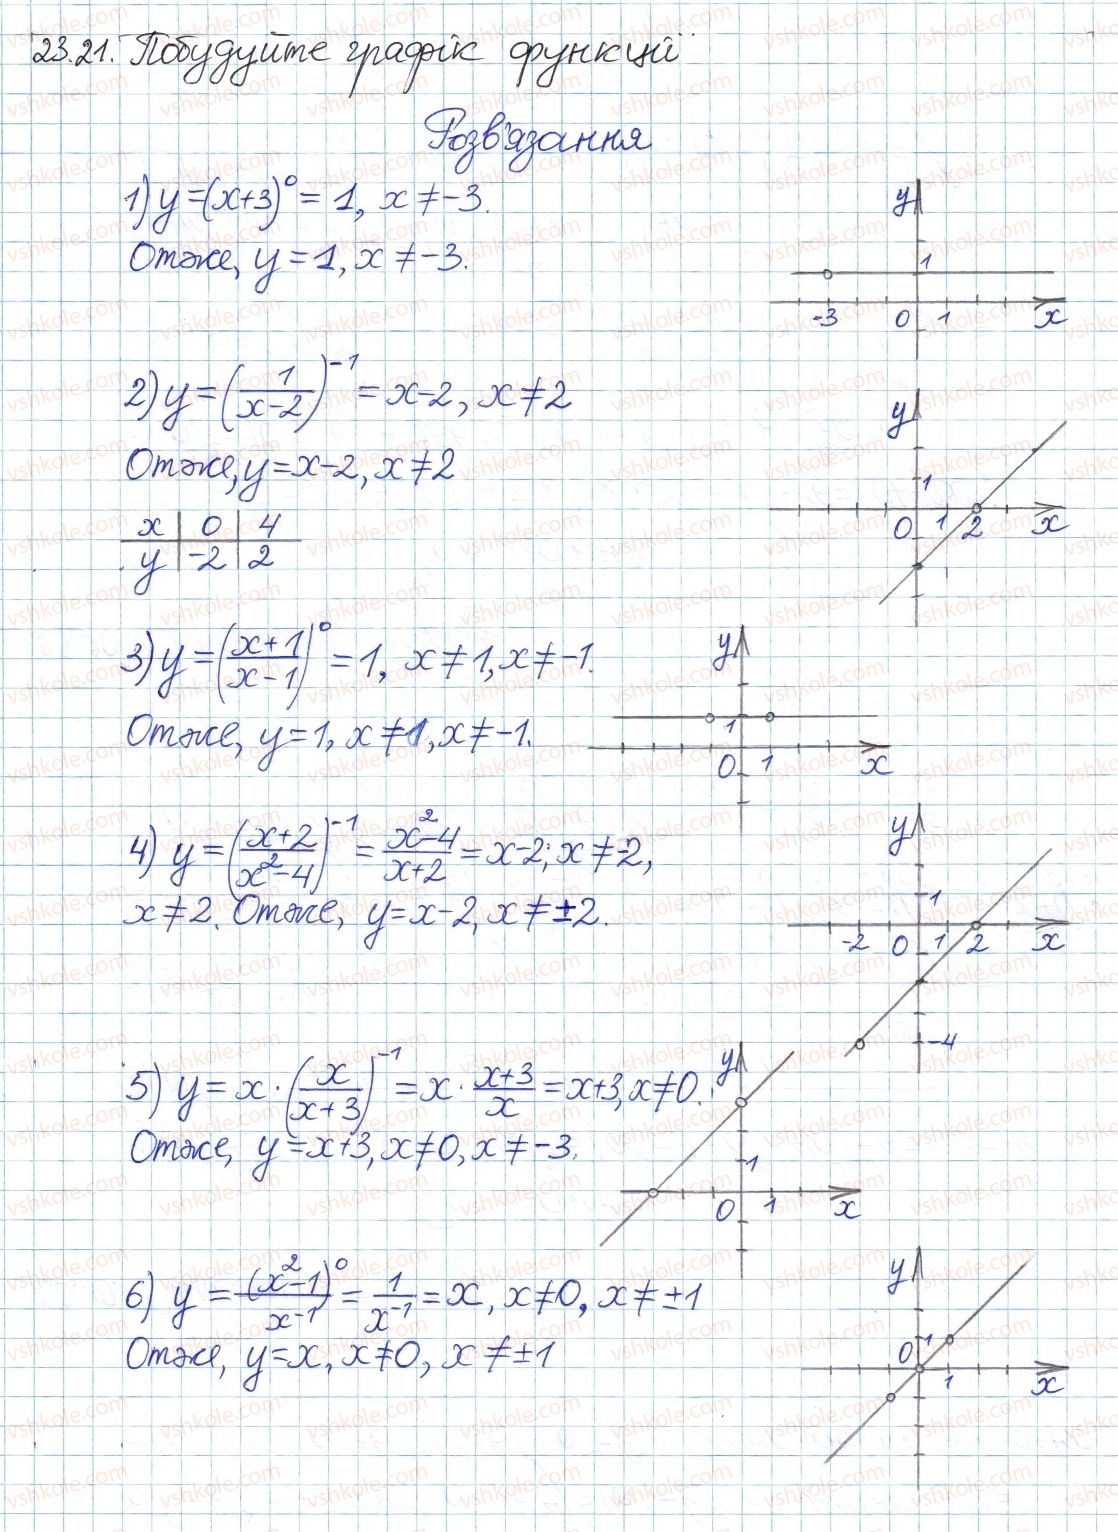 23.21. Побудуйте графік функції
Розв'язання
1) y=(x+3)⁰=1, x≠-3.
Отже, y=1, x≠-3.
y
1
-3 0 1 x
2) y=(1/(x-2))⁻¹=x-2, x≠2
Отже, y=x-2, x≠2
x | 0 | 4
y | -2 | 2
y
1
0 1 2 x
3) y=((x+1)/(x-1))⁰=1, x≠1, x≠-1.
Отже, y=1, x≠1, x≠-1.
y
1
0 1 x
4) y=((x+2)/(x²-4))⁻¹=(x²-4)/(x+2)=x-2; x≠-2,
x≠2. Отже, y=x-2, x≠±2.
y
1
-2 0 1 2 x
-4
5) y=x·(x/(x+3))⁻¹=x·(x+3)/x=x+3, x≠0.
Отже, y=x+3, x≠0, x≠-3.
y
1
0 1 x
6) y=(x²-1)⁰/x⁻¹=1/x⁻¹=x, x≠0, x≠±1
Отже, y=x, x≠0, x≠±1
y
1
0 1 x
vshkole.com